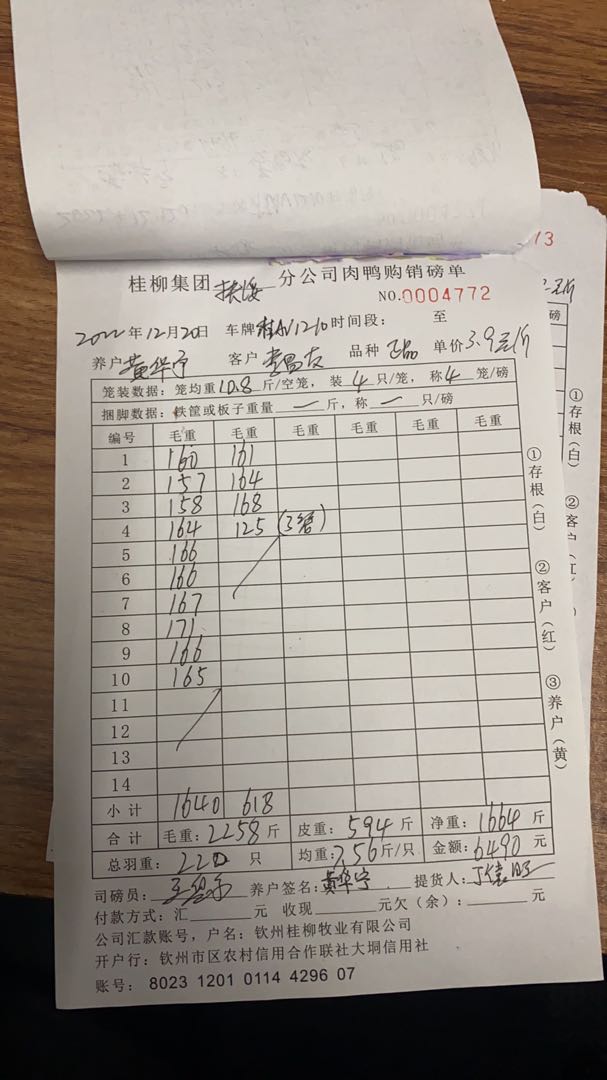 73
桂柳集团 扶绥 分公司肉鸭购销磅单
NO.0004772
2022年12月20日 车牌桂AV1210时间段： 至
养户黄华宁 客户 品种 单价3.9元/斤
笼装数据：笼均重10.8斤/空笼，装4只/笼，称4笼/磅
捆脚数据：铁筐或板子重量 — 斤，称 — 只/磅
编号 毛重 毛重 毛重 毛重 毛重 毛重
1 160 161
2 157 164
3 158 168
4 164 125 (3笼)
5 166
6 166
7 167
8 171
9 166
10 165
11
12
13
14
小计 1640 618
合计 毛重：2258斤 皮重：594斤 净重：1664斤
总羽重：220 只 均重：7.56斤/只 金额：6490元
司磅员： 养户签名：黄华宁 提货人：
付款方式：汇 元 收现 元欠（余）： 元
公司汇款账号，户名：钦州桂柳牧业有限公司
开户行：钦州市区农村信用合作联社大垌信用社
账号：8023 1201 0114 4296 07
①存根（白）
②客户（红）
③养户（黄）
磅
①存根（白）
②客户（红）